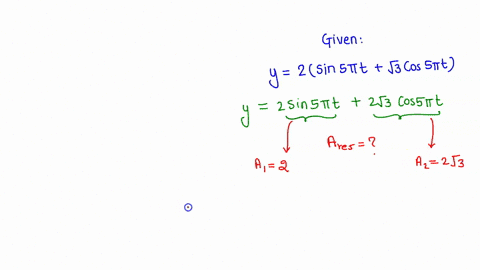 Given:
y = 2(sin5πt + √3 Cos5πt)
y = 2sin5πt + 2√3 Cos5πt
Ares = ?
A₁ = 2
A₂ = 2√3